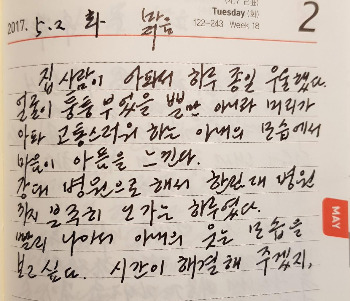 2017. 5. 2 화 맑음
Tuesday (화)
122-243 Week 18
2
집사람이 아파서 하루 종일 우울했다.
얼굴이 퉁퉁 부었을 뿐만 아니라 머리가
아파 고통스러워 하는 아내의 모습에서
마음이 아픔을 느낀다.
강대 병원으로 해서 한림대 병원
까지 분주히 오가는 하루였다.
빨리 나아서 아내의 웃는 모습을
보고 싶다. 시간이 해결해 주겠지,
MAY